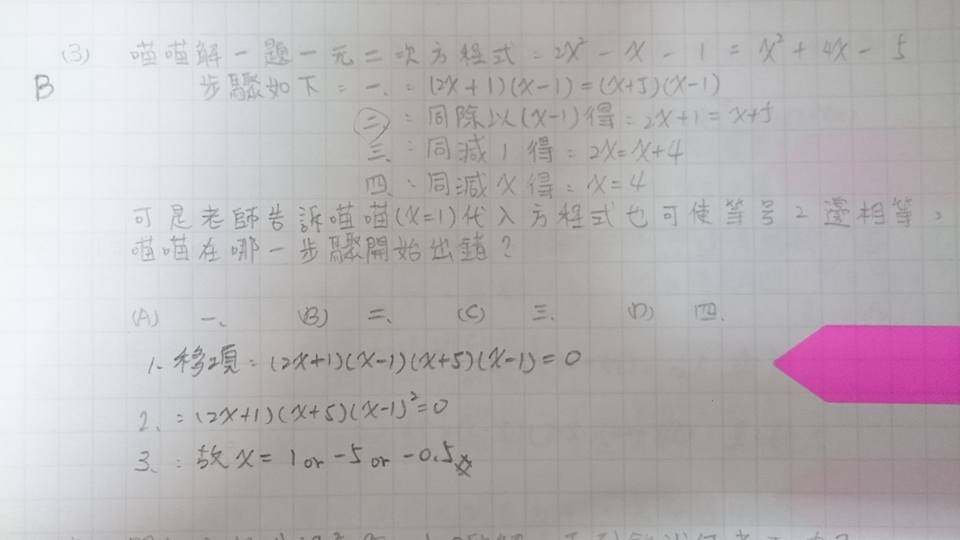 (3) 喵喵解一題一元二次方程式：2X² - X - 1 = X² + 4X - 5
B 步驟如下：一、：(2X+1)(X-1)=(X+5)(X-1)
二、：同除以(X-1)得：2X+1=X+5
三、：同減1得：2X=X+4
四、：同減X得：X=4
可是老師告訴喵喵(X=1)代入方程式也可使等號2邊相等，
喵喵在哪一步驟開始出錯？
(A) 一、 (B) 二、 (C) 三、 (D) 四、
1、移項：(2X+1)(X-1)(X+5)(X-1)=0
2、：(2X+1)(X+5)(X-1)²=0
3、：故X=1 or -5 or -0.5